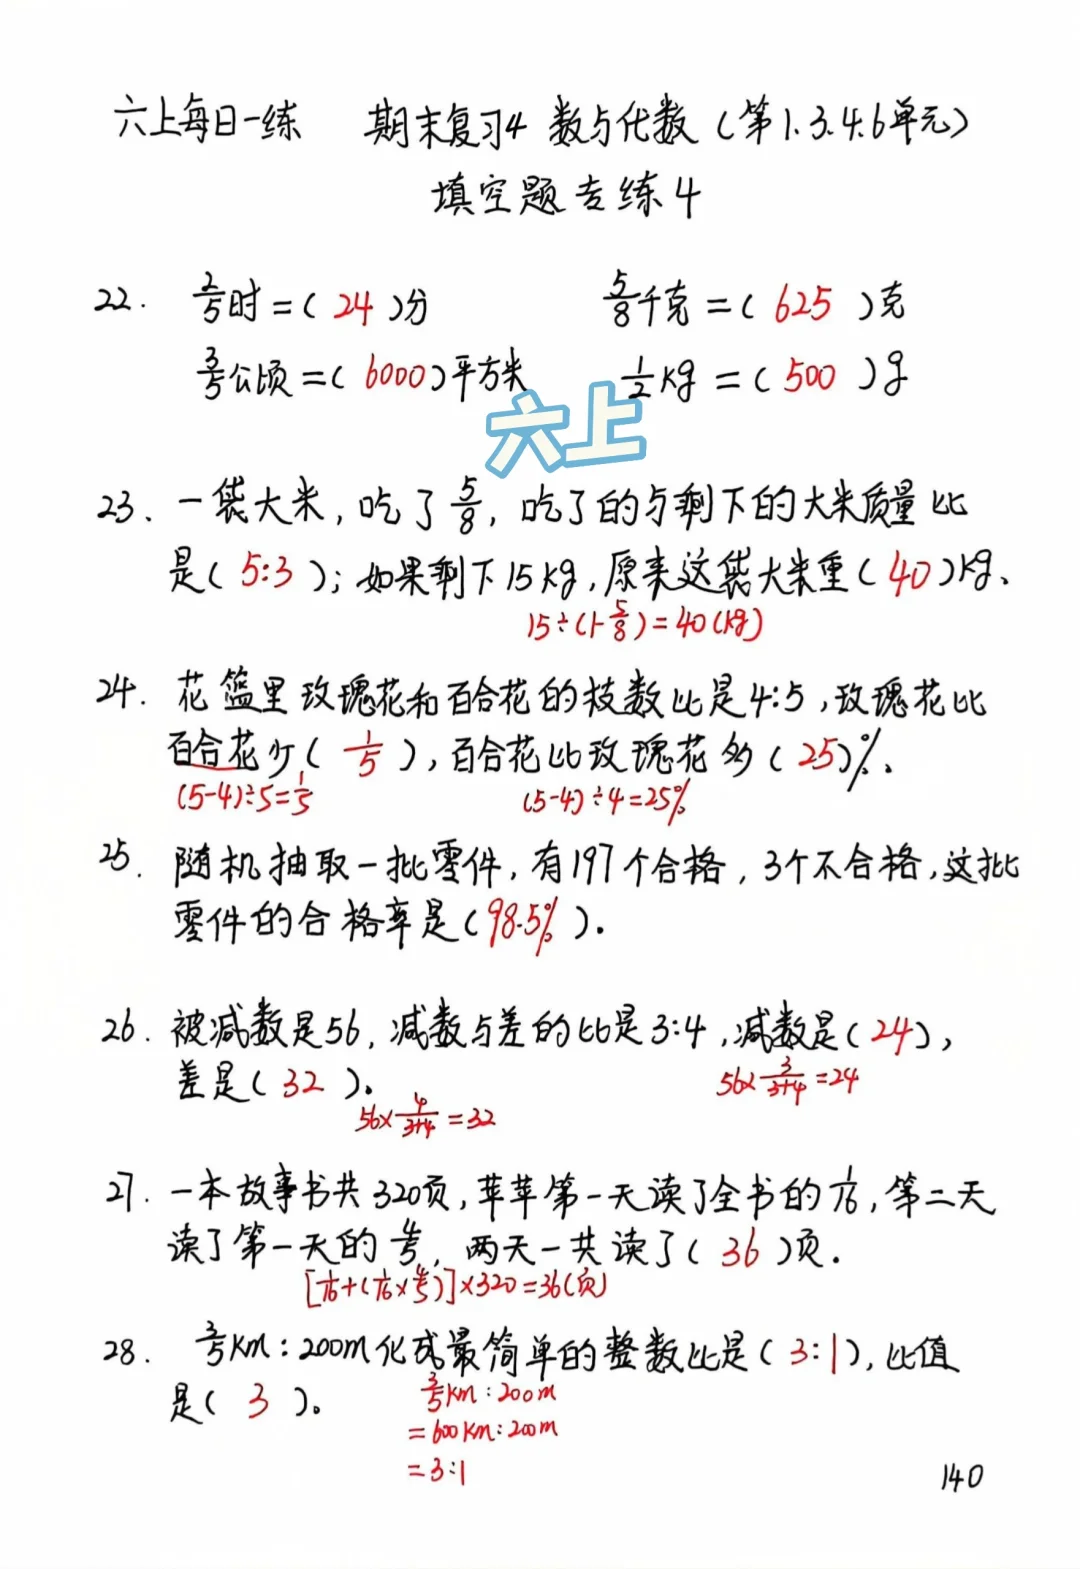 六上每日一练 期末复习4 数与代数(第1.3.4.6单元)
填空题专练4
22. 2/5时=(24)分 5/8千克=(625)克
3/5公顷=(6000)平方米 1/2kg=(500)g
六上
23、一袋大米,吃了5/8,吃了的与剩下的大米质量比
是(5:3);如果剩下15kg,原来这袋大米重(40)kg、
15÷(1-5/8)=40(kg)
24. 花篮里玫瑰花和百合花的枝数比是4:5,玫瑰花比
百合花少(1/5),百合花比玫瑰花多(25)%、
(5-4)÷5=1/5 (5-4)÷4=25%
25. 随机抽取一批零件,有197个合格,3个不合格,这批
零件的合格率是(98.5%).
26. 被减数是56,减数与差的比是3:4,减数是(24),
差是(32)。 56×3/3+4=24
56×4/3+4=32
27. 一本故事书共320页,苹苹第一天读了全书的1/16,第二天
读了第一天的4/5,两天一共读了(36)页.
[1/16+(1/16×4/5)]×320=36(页)
28. 3/5km:200m化成最简单的整数比是(3:1),比值
是(3)。 3/5km:200m
=600km:200m
=3:1
140